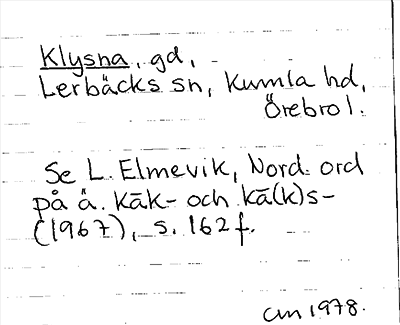 Klysna, gd,
Lerbäcks sn, Kumla hd,
Örebro l.
Se L. Elmevik, Nord. ord
på ä. kāk- och kā(k)s-
(1967), s. 162 f.
CM 1978.